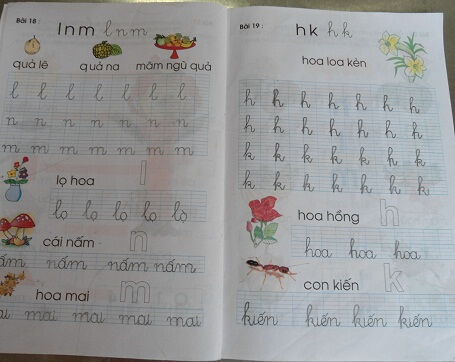 Bài 18 :
l n m l n m
quả lê quả na mâm ngũ quả
l l l l l l l
n n n n n n n
m m m m m m m
lọ hoa l
lọ lọ lọ lọ lọ
cái nấm n
nấm nấm nấm nấm
hoa mai m
mai mai mai mai mai
Bài 19 :
h k h k
hoa loa kèn
h h h h h h h
h h h h h h h
k k k k k k k
k k h k k h k
hoa hồng h
hoa hoa hoa
con kiến k
kiến kiến kiến kiến